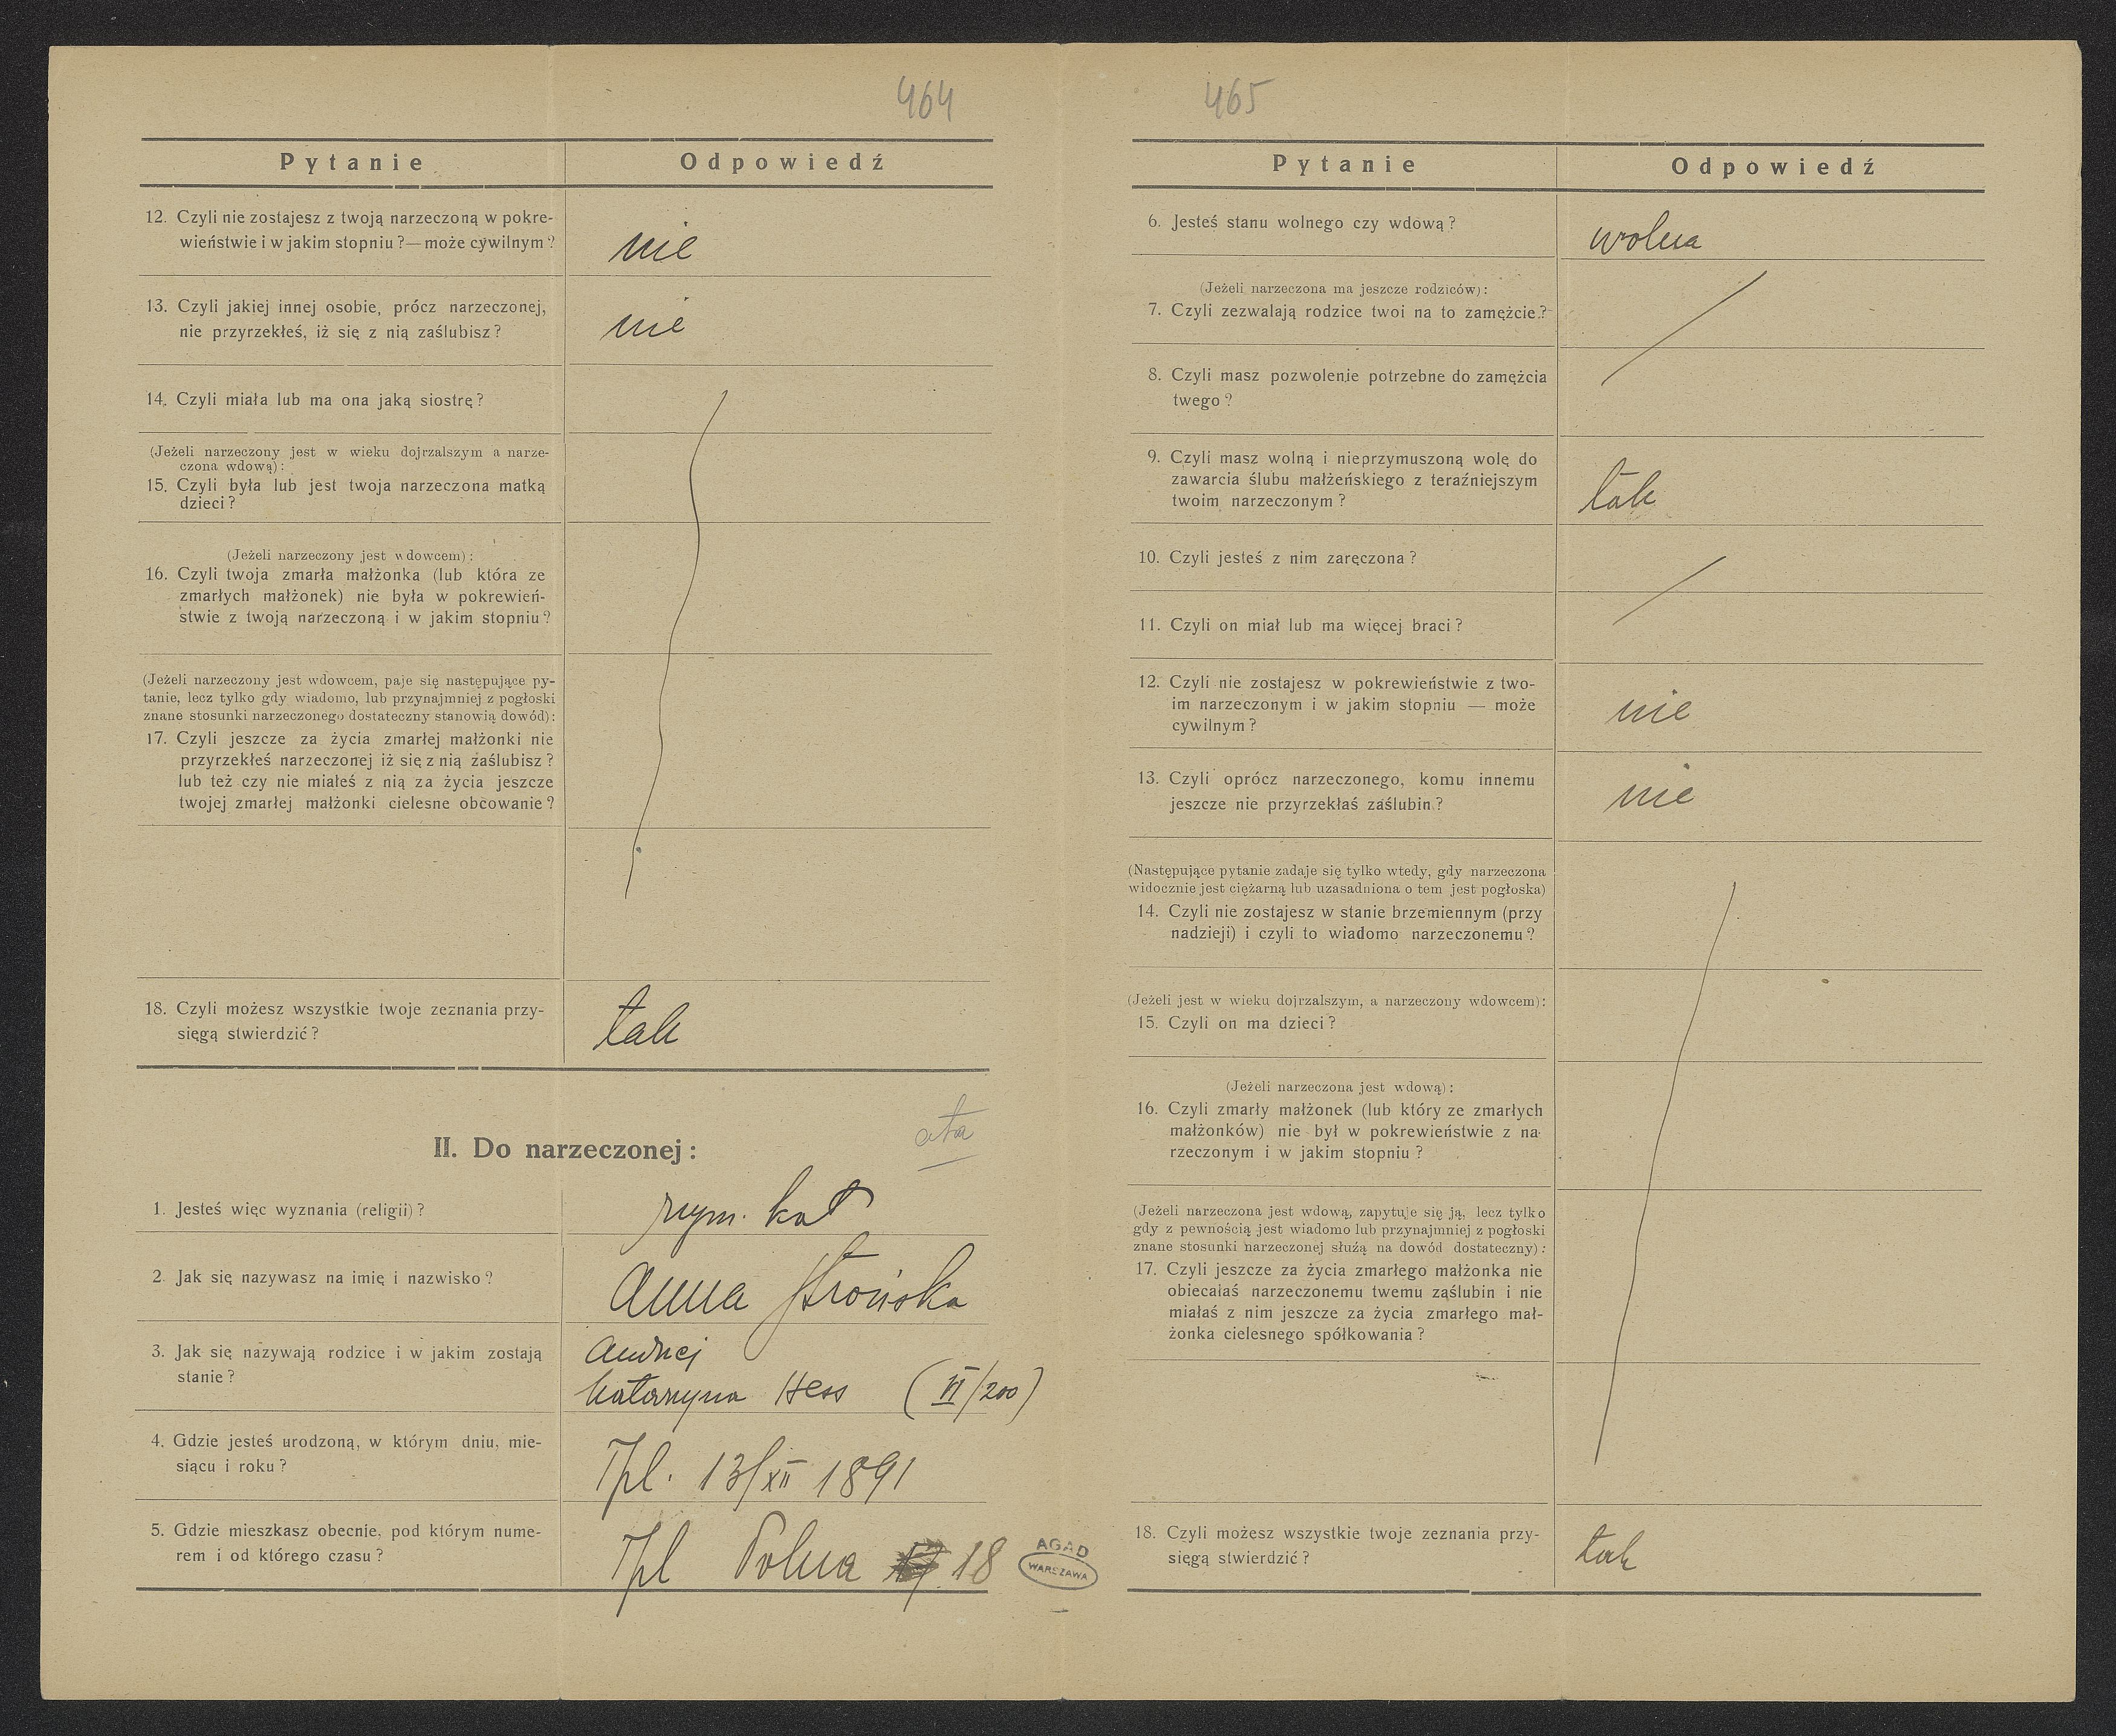 464
Pytanie Odpowiedź
12. Czyli nie zostajesz z twoją narzeczoną w pokre-
wieństwie i w jakim stopniu?—może cywilnym?
nie
13. Czyli jakiej innej osobie, prócz narzeczonej,
nie przyrzekłeś, iż się z nią zaślubisz?
nie
14. Czyli miała lub ma ona jaką siostrę?
(Jeżeli narzeczony jest w wieku dojrzalszym a narze-
czona wdową):
15. Czyli była lub jest twoja narzeczona matką
dzieci?
(Jeżeli narzeczony jest wdowcem):
16. Czyli twoja zmarła małżonka (lub która ze
zmarłych małżonek) nie była w pokrewień-
stwie z twoją narzeczoną i w jakim stopniu?
(Jeżeli narzeczony jest wdowcem, paje się następujące py-
tanie, lecz tylko gdy wiadomo, lub przynajmniej z pogłoski
znane stosunki narzeczonego dostateczny stanowią dowód):
17. Czyli jeszcze za życia zmarłej małżonki nie
przyrzekłeś narzeczonej iż się z nią zaślubisz?
lub też czy nie miałeś z nią za życia jeszcze
twojej zmarłej małżonki cielesne obcowanie?
18. Czyli możesz wszystkie twoje zeznania przy-
sięgą stwierdzić?
tak
II. Do narzeczonej:
1. Jesteś więc wyznania (religii)?
rzym. kat
2. Jak się nazywasz na imię i nazwisko?
Anna Strońska
3. Jak się nazywają rodzice i w jakim zostają
stanie?
Andrzej
Katarzyna Hess (VI/200)
4. Gdzie jesteś urodzoną, w którym dniu, mie-
siącu i roku?
Tpl. 13/XII 1891
5. Gdzie mieszkasz obecnie, pod którym nume-
rem i od którego czasu?
Tpl Polna 18
AGAD
WARSZAWA
465
Pytanie Odpowiedź
6. Jesteś stanu wolnego czy wdową?
wolna
(Jeżeli narzeczona ma jeszcze rodziców):
7. Czyli zezwalają rodzice twoi na to zamężcie?
8. Czyli masz pozwolenie potrzebne do zamężcia
twego?
9. Czyli masz wolną i nieprzymuszoną wolę do
zawarcia ślubu małżeńskiego z teraźniejszym
twoim narzeczonym?
tak
10. Czyli jesteś z nim zaręczona?
11. Czyli on miał lub ma więcej braci?
12. Czyli nie zostajesz w pokrewieństwie z two-
im narzeczonym i w jakim stopniu — może
cywilnym?
nie
13. Czyli oprócz narzeczonego, komu innemu
jeszcze nie przyrzekłaś zaślubin?
nie
(Następujące pytanie zadaje się tylko wtedy, gdy narzeczona
widocznie jest ciężarną lub uzasadniona o tem jest pogłoska)
14. Czyli nie zostajesz w stanie brzemiennym (przy
nadzieji) i czyli to wiadomo narzeczonemu?
(Jeżeli jest w wieku dojrzalszym, a narzeczony wdowcem):
15. Czyli on ma dzieci?
(Jeżeli narzeczona jest wdową):
16. Czyli zmarły małżonek (lub który ze zmarłych
małżonków) nie był w pokrewieństwie z na-
rzeczonym i w jakim stopniu?
(Jeżeli narzeczona jest wdową, zapytuje się ją, lecz tylko
gdy z pewnością jest wiadomo lub przynajmniej z pogłoski
znane stosunki narzeczonej służą na dowód dostateczny):
17. Czyli jeszcze za życia zmarłego małżonka nie
obiecałaś narzeczonemu twemu zaślubin i nie
miałaś z nim jeszcze za życia zmarłego mał-
żonka cielesnego spółkowania?
18. Czyli możesz wszystkie twoje zeznania przy-
sięgą stwierdzić?
tak